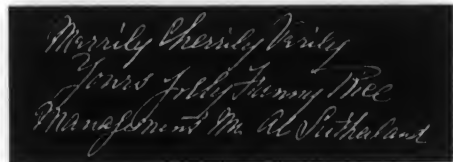 Merrily Cherrily Verily
Yours Jolly Fanny Rice
Management Mr. Al Sutherland